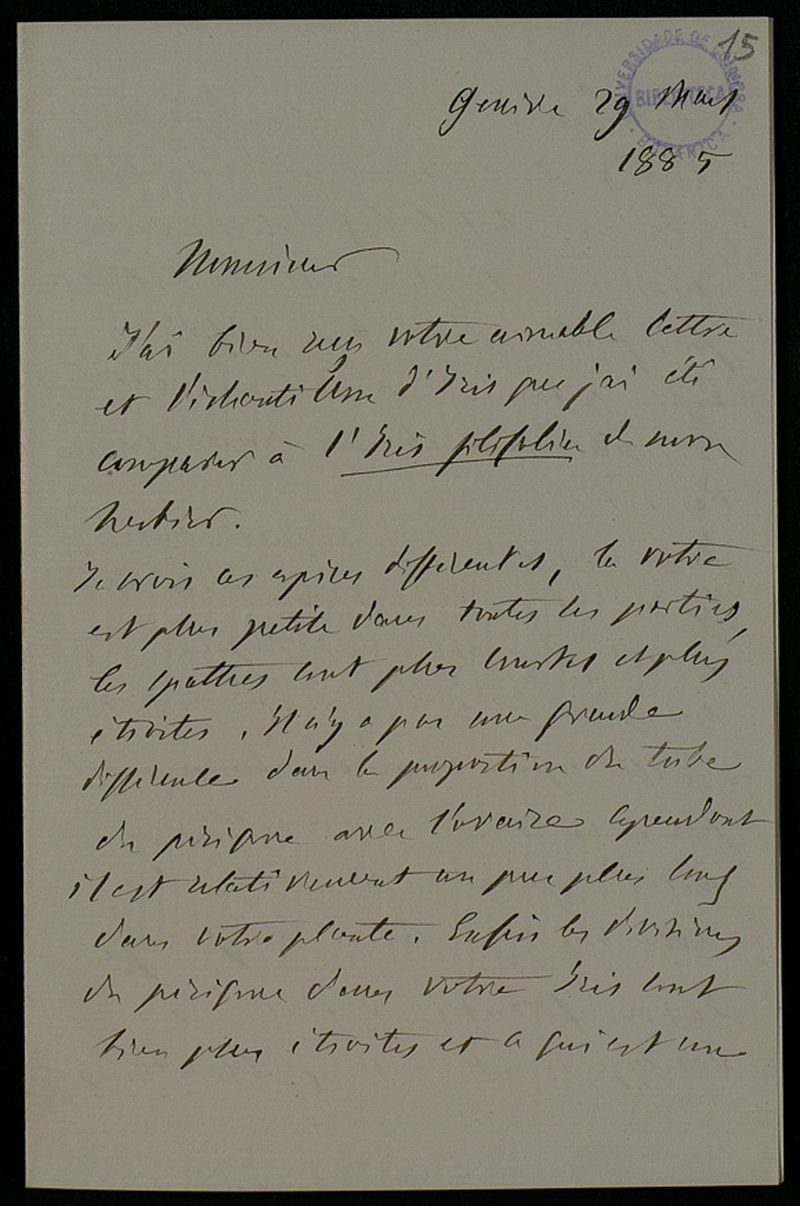 15
UNIVERSIDADE DE COIMBRA
BIBLIOTECA
BOTANICA
Genève 29 Mars
1885
Monsieur
J'ai bien reçu votre aimable lettre
et l'échantillon d'Iris que j'ai été
comparer à l'Iris filifolia de mon
herbier.
Je crois ces espèces différentes, la votre
est plus petite dans toutes les parties,
les spathes sont plus courtes et plus
étroites. Il n'y a pas une grande
différence dans la proportion du tube
du périgone avec l'ovaire cependant
il est relativement un peu plus long
dans votre plante. Enfin les divisions
du périgone dans votre Iris sont
bien plus étroites et ce qui est une